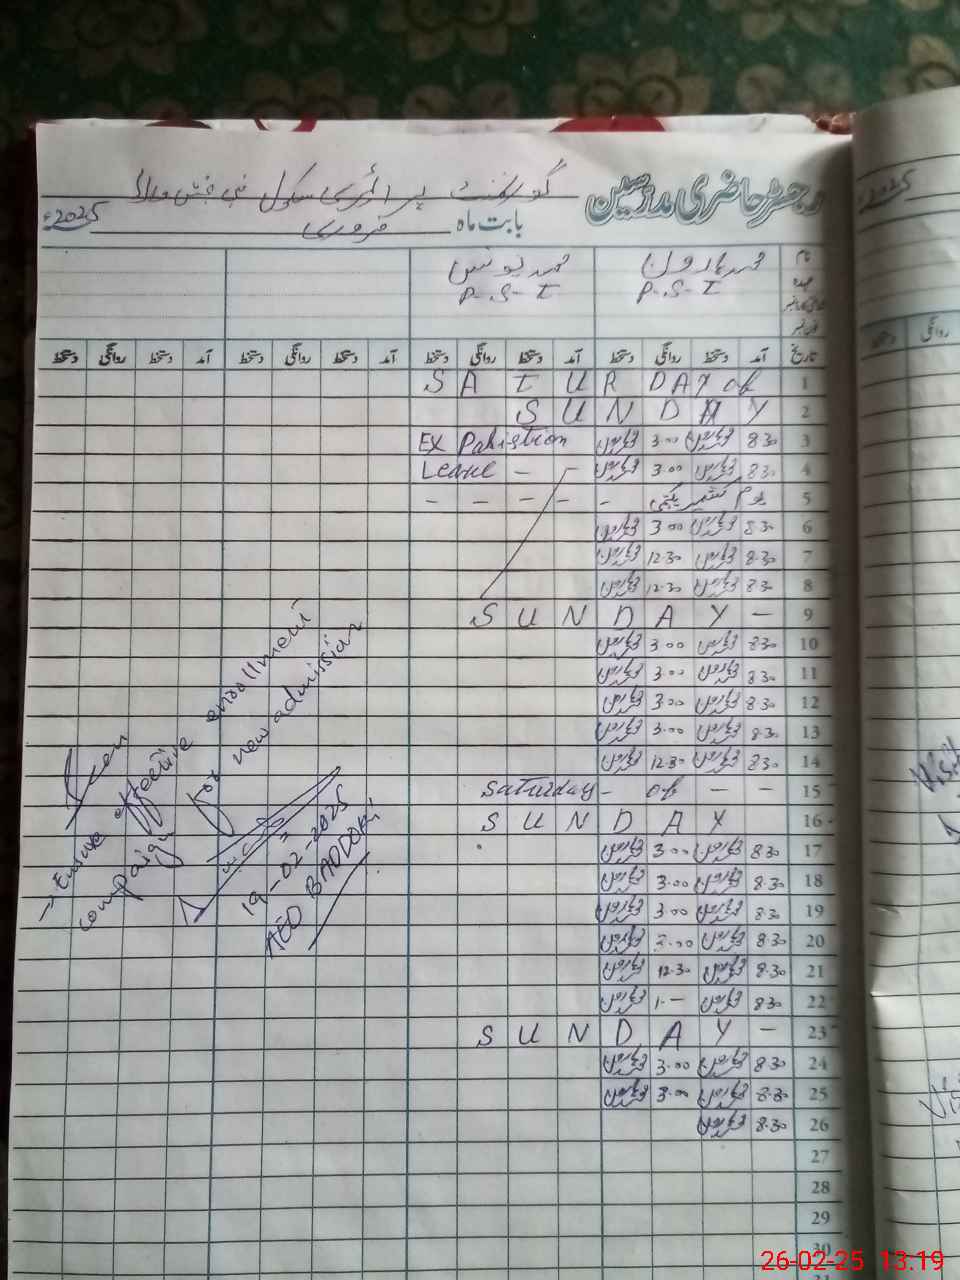 رجسٹر حاضری مدرسین گورنمنٹ پرائمری سکول
بابت ماہ فروری 2025ء
2025
نام محمد ہارون محمد یونس
عہدہ P.S.T P.S.T
تاریخ آمد دستخط روانگی دستخط آمد دستخط روانگی دستخط آمد دستخط روانگی دستخط آمد دستخط روانگی دستخط
روانگی دستخط
1 SATURDAY of
2 SUNDAY
3 8.30 3.00 EX Pakistion
4 8.30 3.00 Leave - -
5 یوم کشمیر یکجہتی - - - - -
6 8.30 3.00
7 8.30 12.30
8 8.30 12.30
9 SUNDAY -
10 8.30 3.00
11 8.30 3.00
12 8.30 3.00
13 8.30 3.00
14 8.30 12.30
15 Saturday - of - -
16 SUNDAY
17 8.30 3.00
18 8.30 3.00
19 8.30 3.00
20 8.30 3.00
21 8.30 12.30
22 8.30 1.-
23 SUNDAY -
24 8.30 3.00
25 8.30 3.00
26 8.30
27
28
29
30
31
Seen
→ Ensure effective enrollment
compaign for new admission
19-02-2025
AEO BADDOKI
26-02-25 13:19